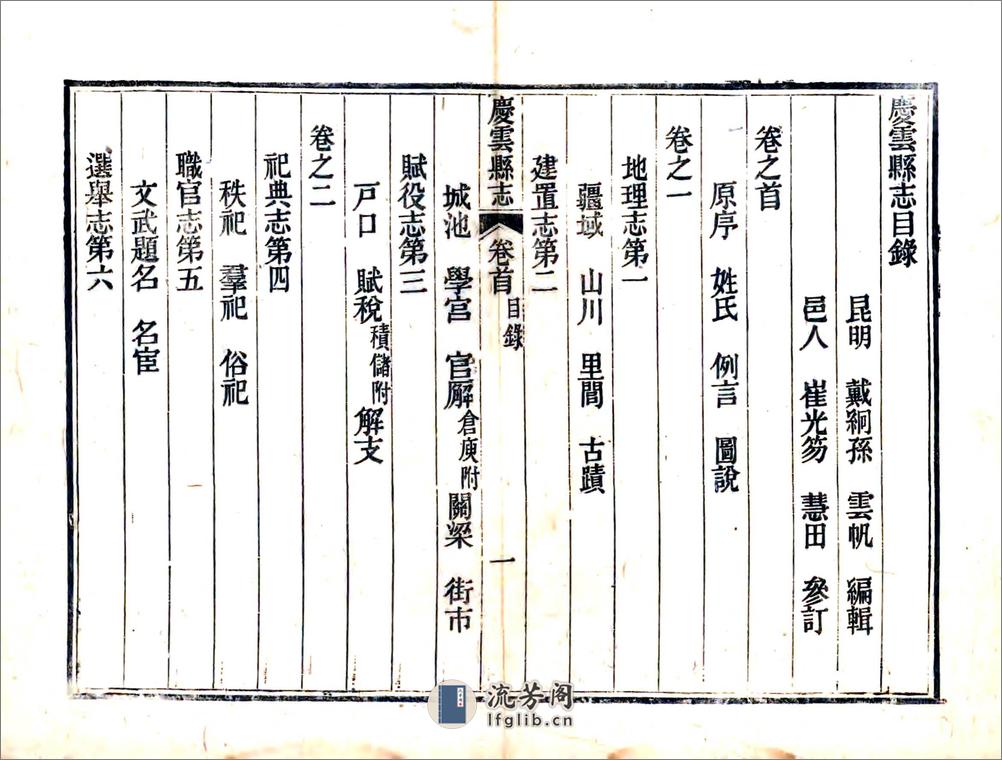 慶雲縣志目錄
昆明 戴絅孫 雲帆 編輯
邑人 崔光笏 慧田 參訂
卷之首
原序 姓氏 例言 圖說
卷之一
地理志第一
疆域 山川 里閭 古蹟
建置志第二
慶雲縣志 卷首 目錄 一
城池 學宮 官廨 倉庾附 關梁 街市
賦役志第三
戶口 賦稅 積儲附 解支
卷之二
祀典志第四
秩祀 羣祀 俗祀
職官志第五
文武題名 名宦
選舉志第六
流芳阁
lfglib.cn